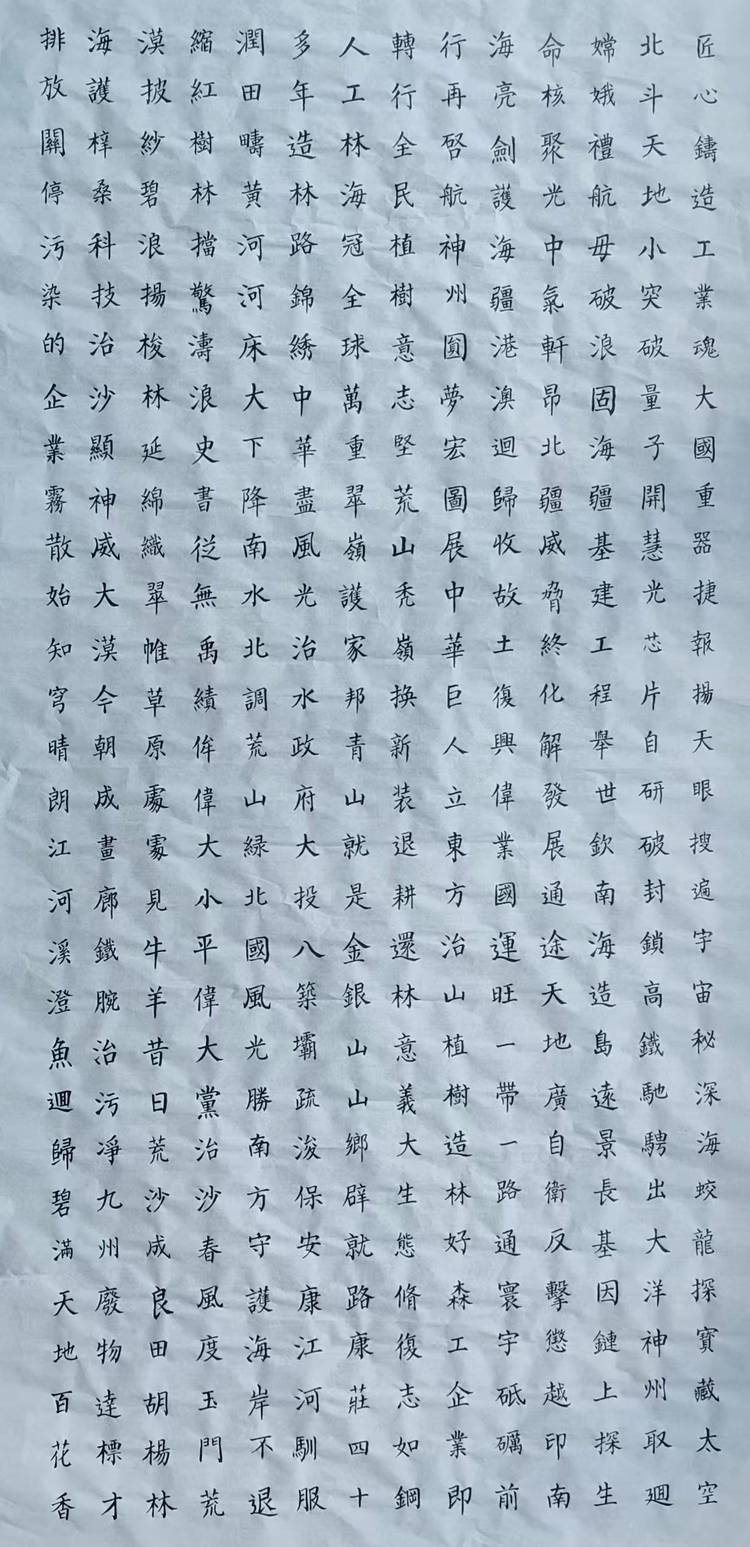 匠心鑄造工業魂大國重器捷報揚天眼搜遍宇宙秘深海蛟龍探寶藏太空
北斗天地小突破量子開慧光芯片自研破封鎖高鐵馳騁出大洋神州取迴
嫦娥禮航母破浪固海疆基建工程舉世欽南海造島遠景長基因鏈上探生
命核聚光中氣軒昂北疆威脅終化解發展通途天地廣自衛反擊懲越印南
海亮劍護海疆港澳迴歸收故土復興偉業國運旺一帶一路通寰宇砥礪前
行再啓航神州圓夢宏圖展中華巨人立東方治山植樹造林好森工企業即
轉行全民植樹意志堅荒山禿嶺換新装退耕還林意義大生態脩復志如鋼
人工林海冠全球萬重翠嶺護家邦青山就是金銀山山鄉辟就路康莊四十
多年造林路錦綉中華盡風光治水政府大投八築壩疏浚保安康江河馴服
潤田疇黃河河床大下降南水北調荒山緑北國風光勝南方守護海岸不退
縮紅樹林擋驚濤浪史書從無禹績侔偉大小平偉大黨治沙春風度玉門荒
漠披紗碧浪揚梭林延綿織翠帷草原處處見牛羊昔日荒沙成良田胡楊林
海護梓桑科技治沙顯神威大漠今朝成畫廊鐵腕治污凈九州廢物達標才
排放關停污染的企業霧散始知穹晴朗江河溪澄魚迴歸碧滿天地百花香